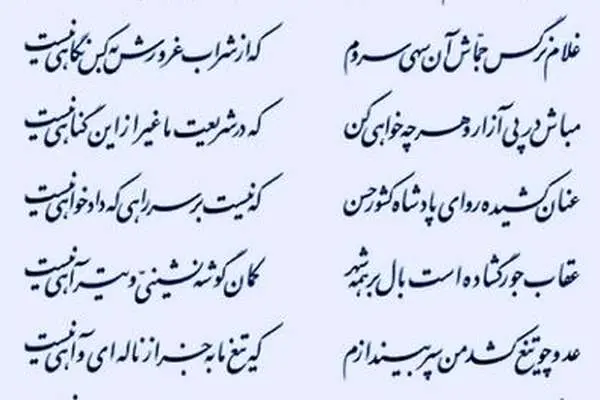 غلام نرگس جماش آن سهی سروم که از شراب غرورش به کس نگاهی نیست
مباش در پی آزار و هر چه خواهی کن که در شریعت ما غیر از این گناهی نیست
عنان کشیده رو ای پادشاه کشور حسن که نیست بر سر راهی که دادخواهی نیست
عقاب جور گشاده است بال بر همه شهر کمان گوشه نشینی و تیر آهی نیست
عدو چو تیغ کشد من سپر بیندازم که تیغ ما به جز از ناله ای و آهی نیست